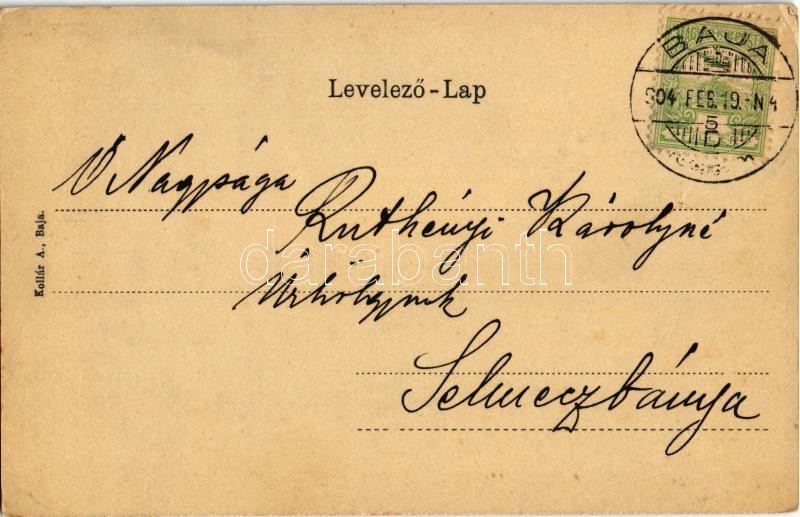 Levelező-Lap
BAJA
904 FEB. 19. - N 4
5
D
Ő Nagysága
Ruthényi Károlyné
Úrhölgynek
Selmeczbánya
Kollár A., Baja.
darabanth